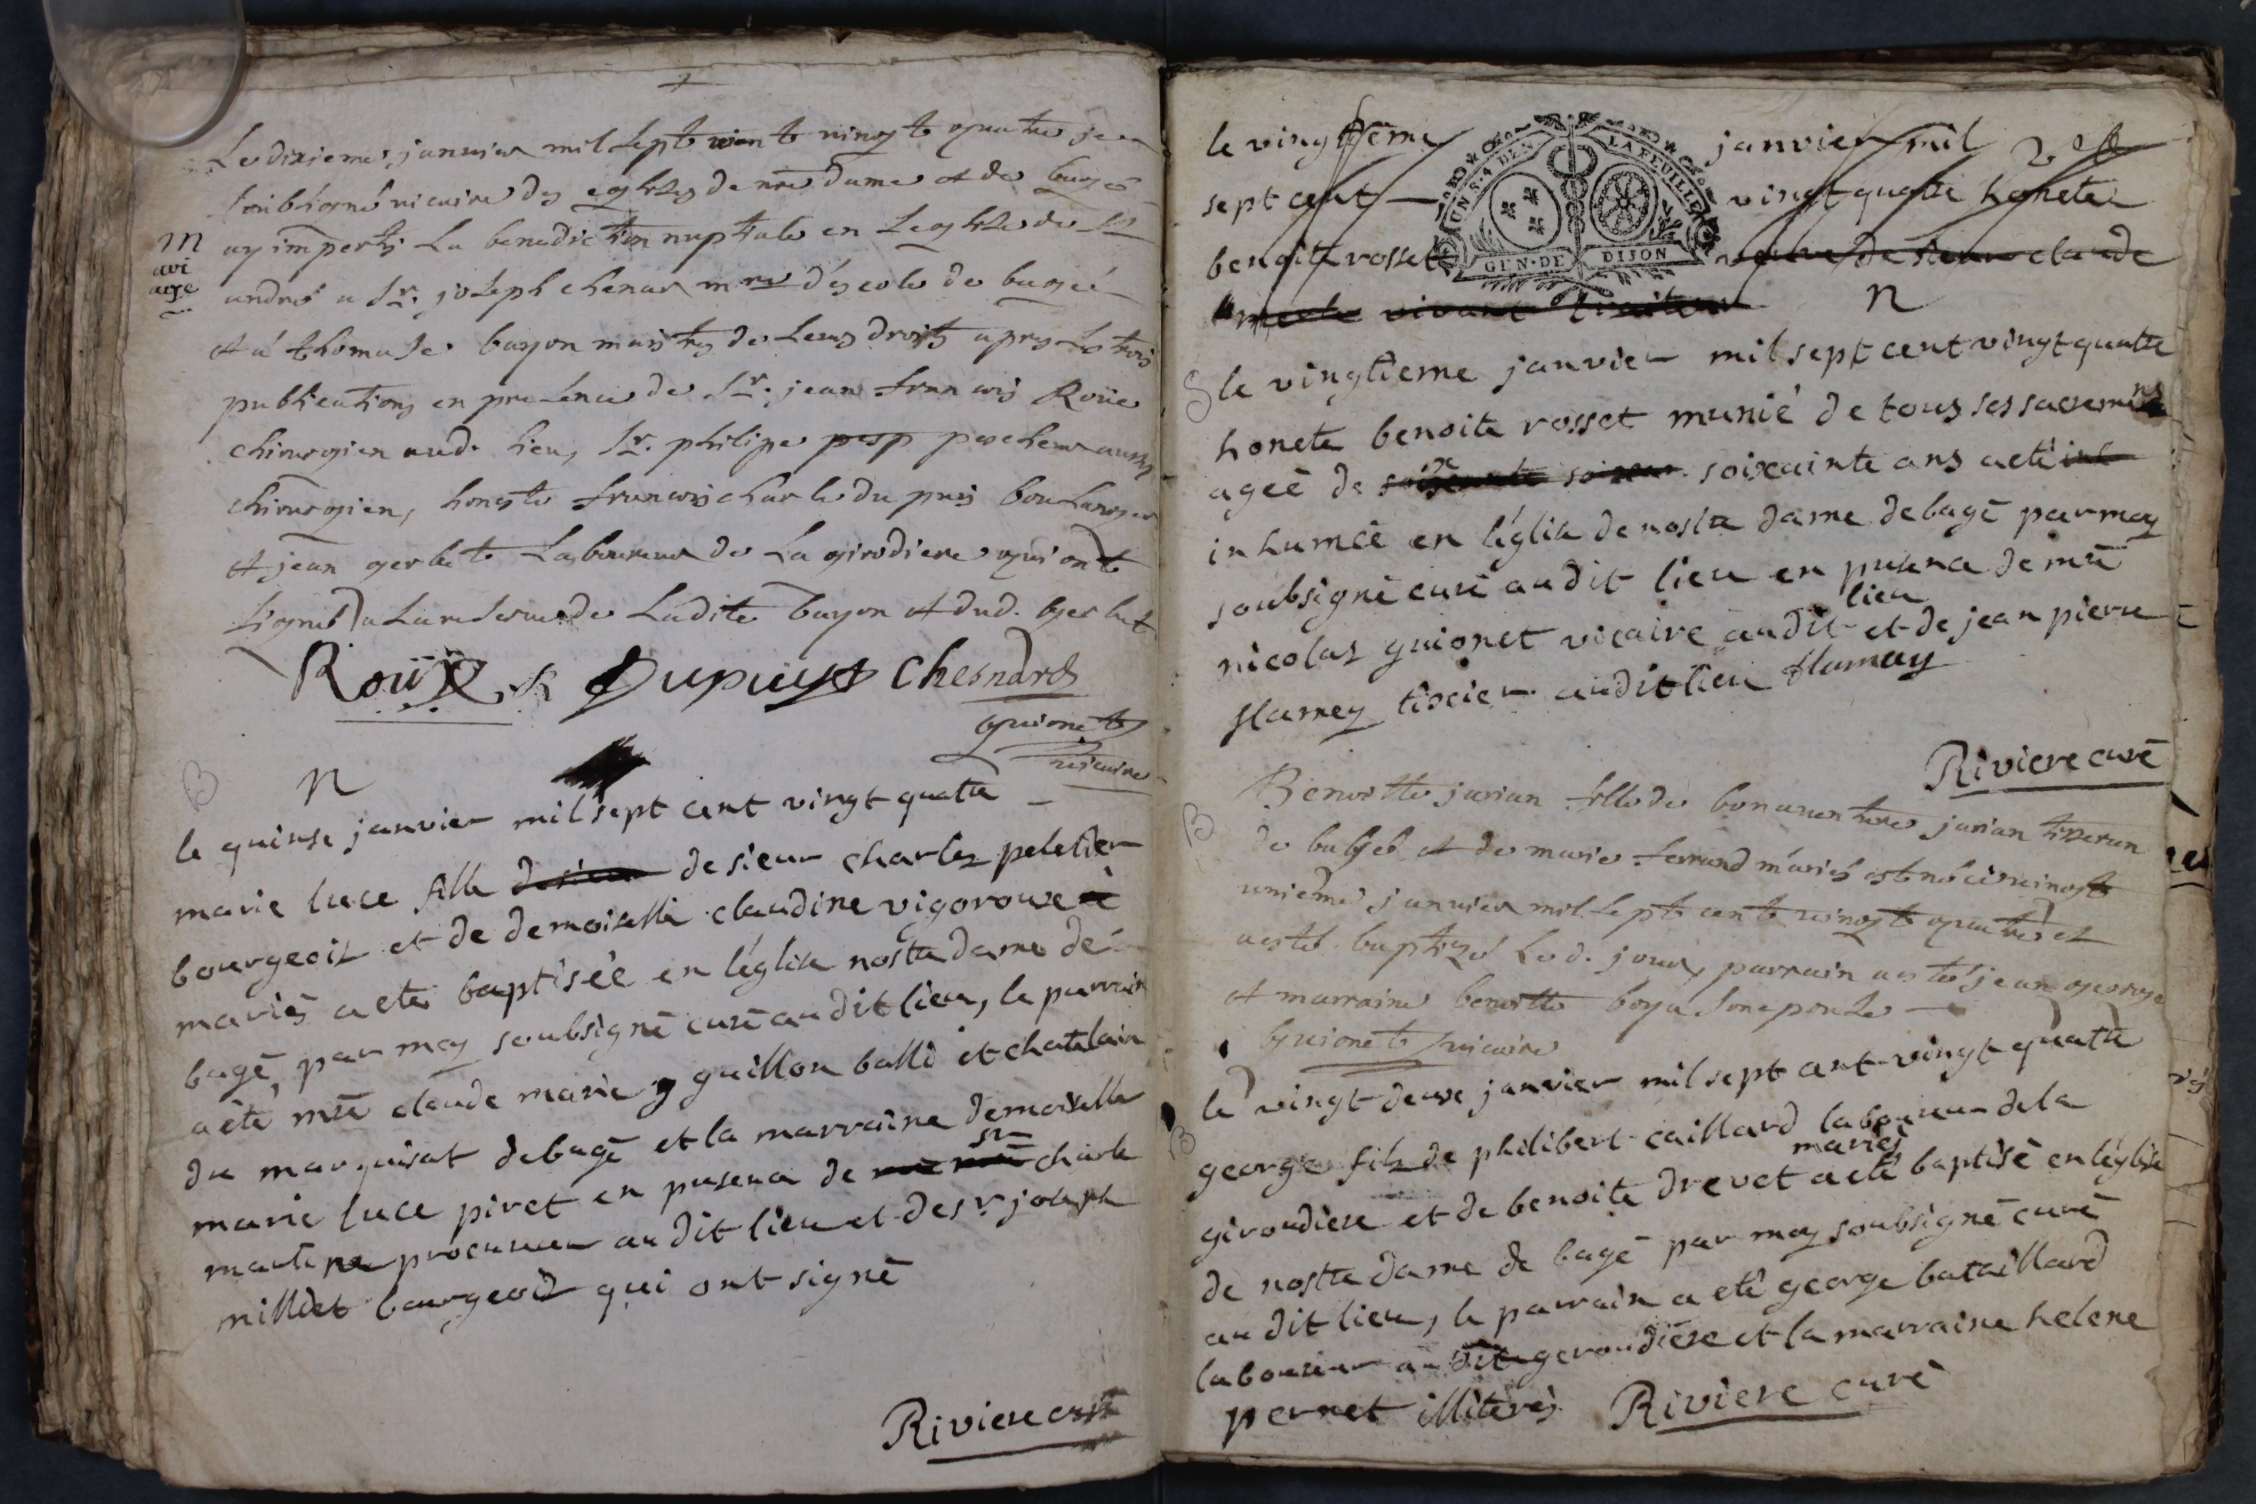 Le dixieme janvier mil sept cent vingt quatre je
soubsigné vicaire des eglises de nre dame et de bagé
M
ari
age
ay imparti la benediction nuptiale en Leglise de St
andré a Sr. joseph chenar mre d'escole de bagé
et a thomase bayon maistres de leurs droits apres Les trois
publications en presence de Sr. jean francois Roüe
chirurgien aud. lieu, Sr. philipe pescheur aussy
chirurgien, honeste francois charle du puis boulanger
et jean gerbet Laboureur de La girodiere qui ont
signé a La reserve de Ladite bayon et dud. gerbet
Roüx Dupuys Chesnard
guionet
vicaire
n
le quinse janvier mil sept cent vingt quatre
marie luce fille de sieur charles peletier
bourgeois et de demoiselle claudine vigoroux
mariés a eté baptisée en l'église nostre dame de
bagé, par moy soubsigné curé audit lieu, le parrain
a été mre claude marie guillon balli et chatelain
du marquisat de bagé et la marraine demoiselle
marie luce piret en presence de sr charle
martine procureur audit lieu et de sr joseph
milliet bourgeois qui ont signé
Riviere curé
le vingtieme janvier mil
sept cent vingt quatre honete
UN S. 4 DEN. LA FEUILLE
GEN. DE DIJON
benoite rosset veuve de sieur claude
merle vivant
n
le vingtieme janvier mil sept cent vingt quatre
honete benoite rosset munie de tous ses sacremens
ageé de soixainte ans a eté
inhumeé en l'église de nostre dame de bagé par moy
soubsigné curé audit lieu en presence de mre
nicolas guionet vicaire audit lieu et de jean pierre
flamey tixier audit lieu flamay
Riviere curé
Benoitte jurian fille de bonaventure jurian tisseran
de bagé et de marie ferrand mariés est né ce vingt
unieme janvier mil sept cent vingt quatre et
a esté baptizé Led. jour, parrain a esté jean george
et marraine benoitte boya son epouse
guionet vicaire
le vingt deux janvier mil sept cent vingt quatre
george fils de philibert caillard laboureur de la
giroudiere et de benoite drevet mariés a eté baptisé en l'église
de nostre dame de bagé par moy soubsigné curé
audit lieu, le parrain a eté george bataillard
laboureur audit geroudiere et la marraine helene
pernet illiterés Riviere curé